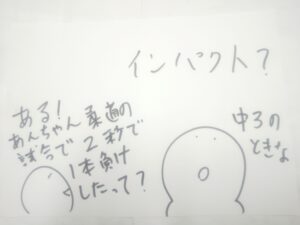 インパクト?
ある!
あんちゃん柔道の
試合で2秒で
1本負け
したって?
中3の
ときな